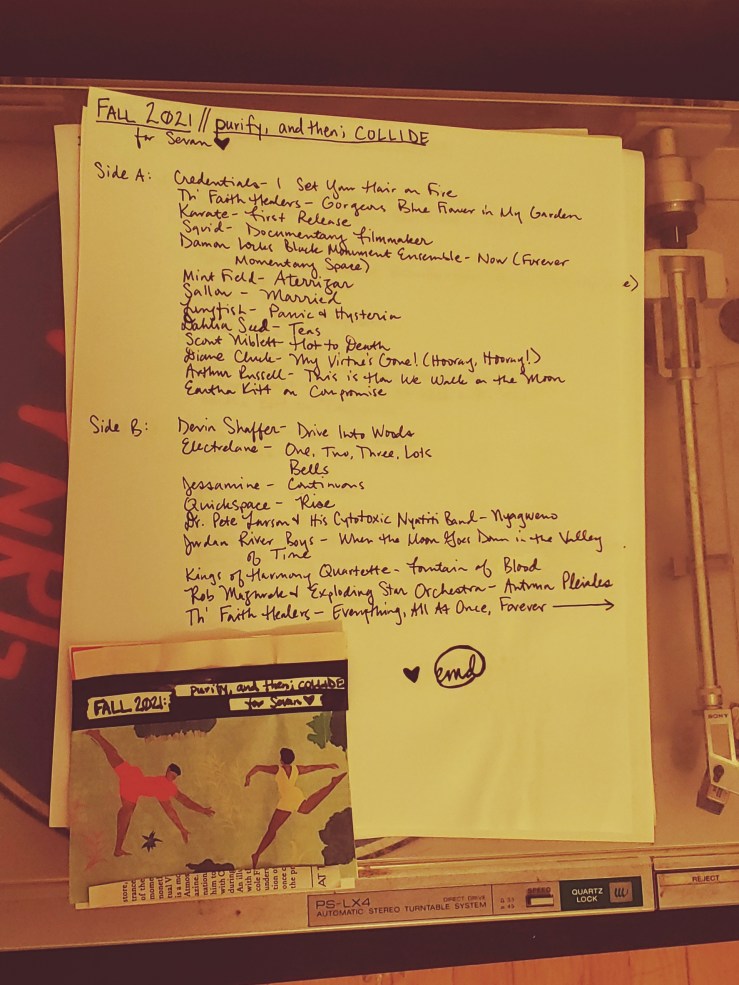 FALL 2021 // purify, and then; COLLIDE
for Sevan ♥
Side A: Credentials - I Set Your Hair on Fire
Th' Faith Healers - Gorgeous Blue Flower in My Garden
Karate - First Release
Squid - Documentary Filmmaker
Damon Locks Black Monument Ensemble - Now (Forever
Momentary Space)
Mint Field - Aterrizar
Sallow - Married
Lungfish - Panic & Hysteria
Dahlia Seed - Teas
Scout Niblett - Hot to Death
Diane Cluck - My Virtue's Gone! (Hooray, Hooray!)
Arthur Russell - This is How We Walk on the Moon
Eartha Kitt on Compromise
Side B: Devin Shaffer - Drive Into Woods
Electrelane - One, Two, Three, Lots
Bells
Jessamine - Continuous
Quickspace - Rise
Dr. Pete Larson & His Cytotoxic Nyatiti Band - Nyagweno
Jordan River Boys - When the Moon Goes Down in the Valley
of Time
Kings of Harmony Quartette - Fountain of Blood
Rob Mazurek & Exploding Star Orchestra - Autumn Pleiades
Th' Faith Healers - Everything, All At Once, Forever →
♥ emd
FALL 2021: purify, and then; COLLIDE
for Sevan ♥
SONY
PS-LX4
AUTOMATIC STEREO TURNTABLE SYSTEM
DIRECT DRIVE
SPEED
QUARTZ
LOCK
REJECT